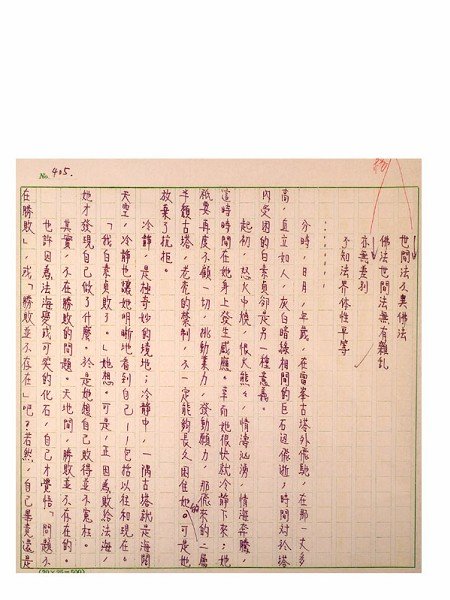 No. 405.
世間法不異佛法
佛法世間法無有雜亂
亦無差別
了知法界体性平等
分時,日月,年歲,在雷峯塔外飛馳,在那一丈多
高,直立如人,灰白暗綠相間的巨石週飛逝;時間對於塔
內受困的白素貞卻是另一種意義。
起初,怒火中燒,恨火熊々,情濤汹湧,情海奔騰,
這時時間在她身上發生感應。幸而她很快就冷靜下來;她
祇要再度不顧一切,挑動業力,發動願力,那飛來的二層
半鎮古塔,老禿的禁制,不一定能夠長久困住她。可是她的
放棄了抗拒。
冷靜,是極奇妙的境地;冷靜中,一隅古塔就是海闊
天空,冷靜也讓她明晰地看到自己——包括以往和現在。
「我白素貞敗了。」她想。可是,正因為敗給法海,
她才發現自己做了什麼,於是她想自己敗得並不冤枉。
其實,不在勝敗的問題。天地間,勝敗並不存在的。
也許因為法海變成可笑的化石,自己才覺悟「問題不
在勝敗」,或「勝敗並不存在」吧?若然,自己畢竟還是
(20×25=500)